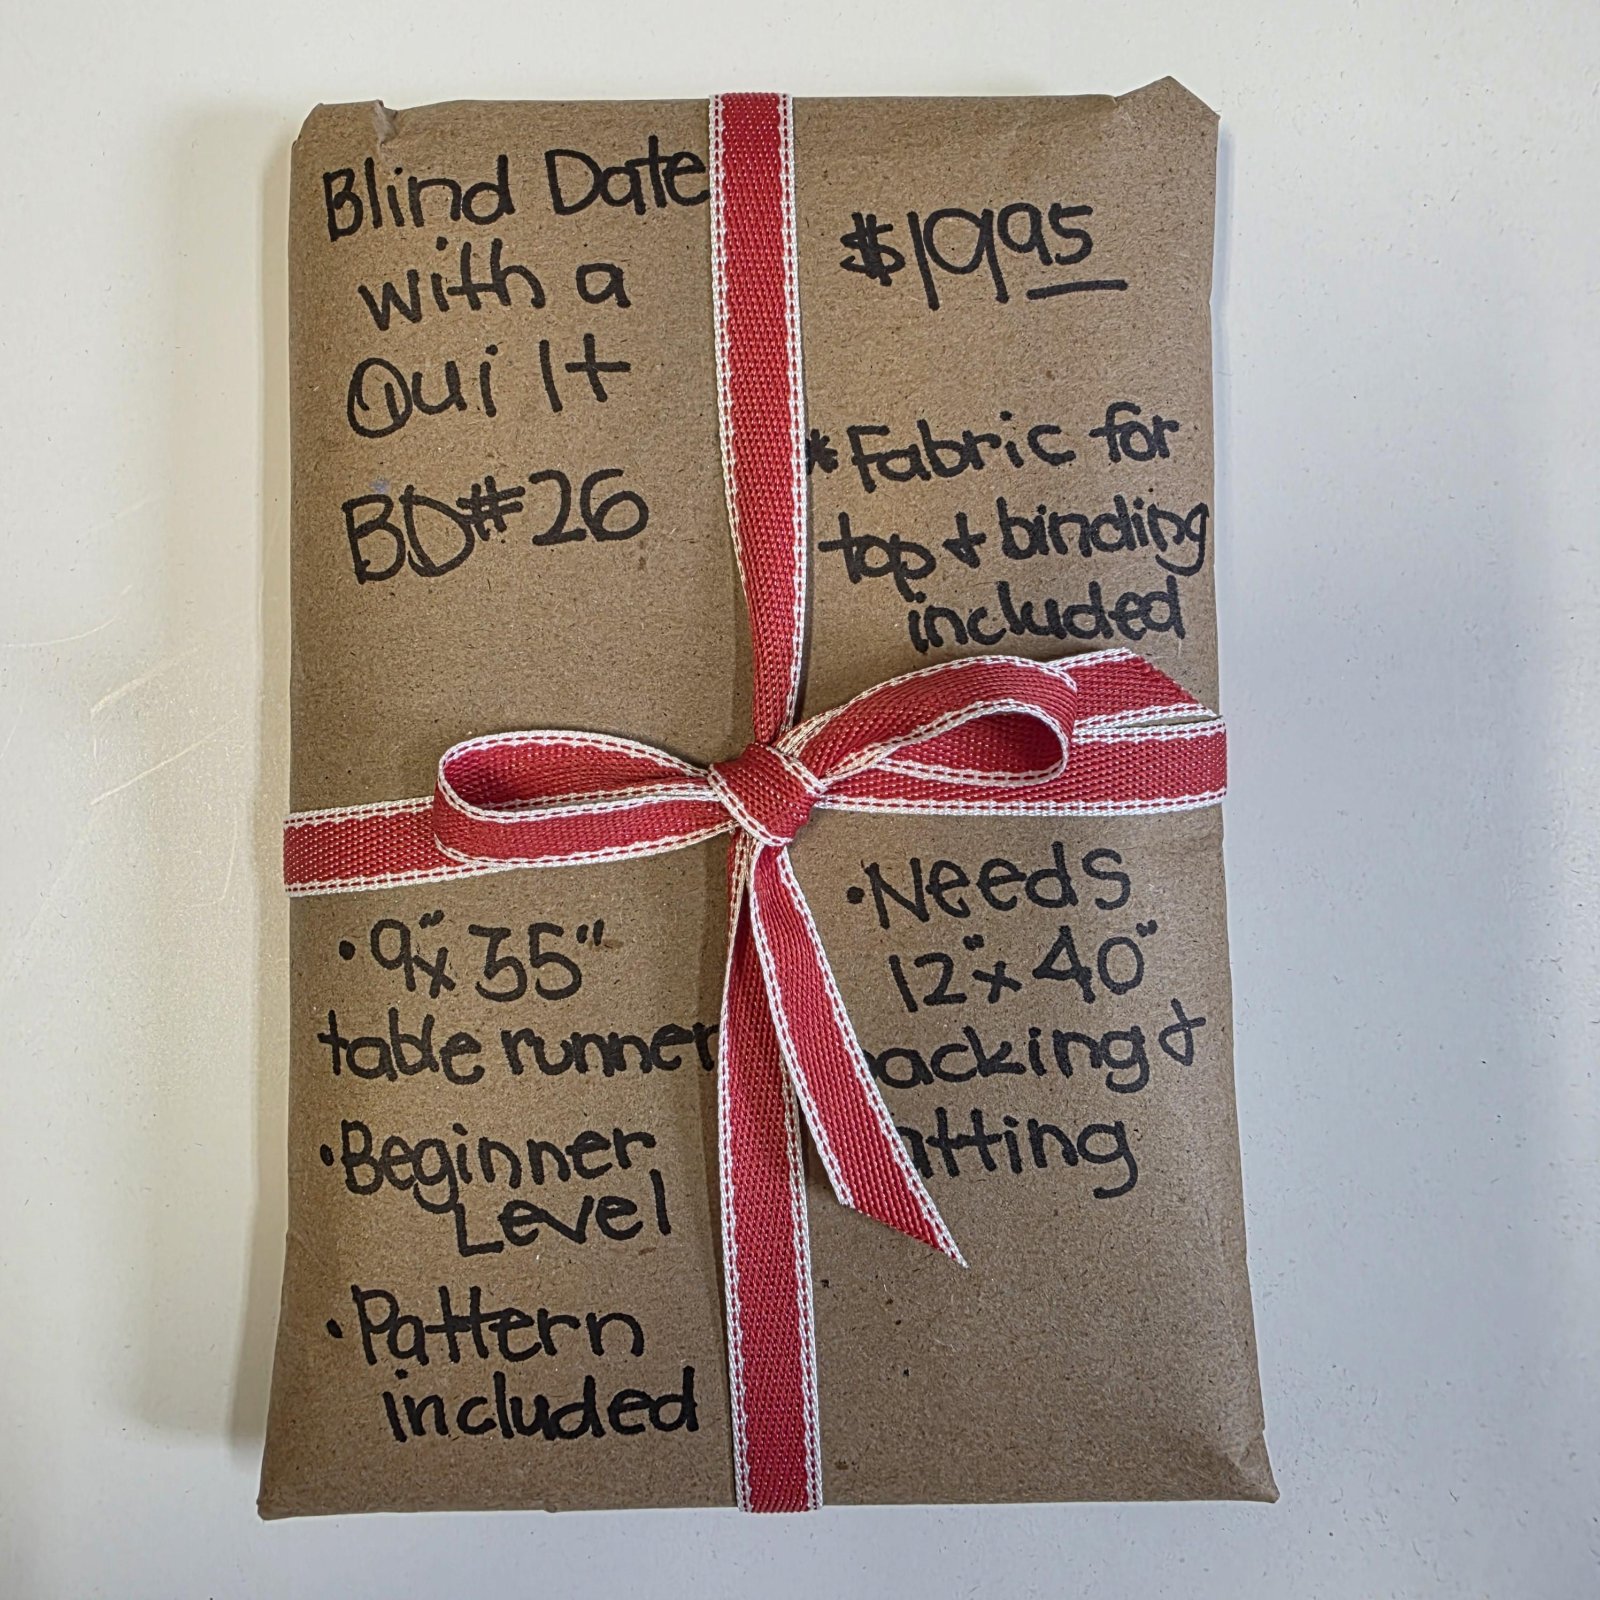 Blind Date
with a
Quilt
BD#26
$19.95
*Fabric for
top & binding
included
• 9" x 35"
table runner
• Beginner
Level
• Pattern
included
• Needs
12" x 40"
backing &
batting